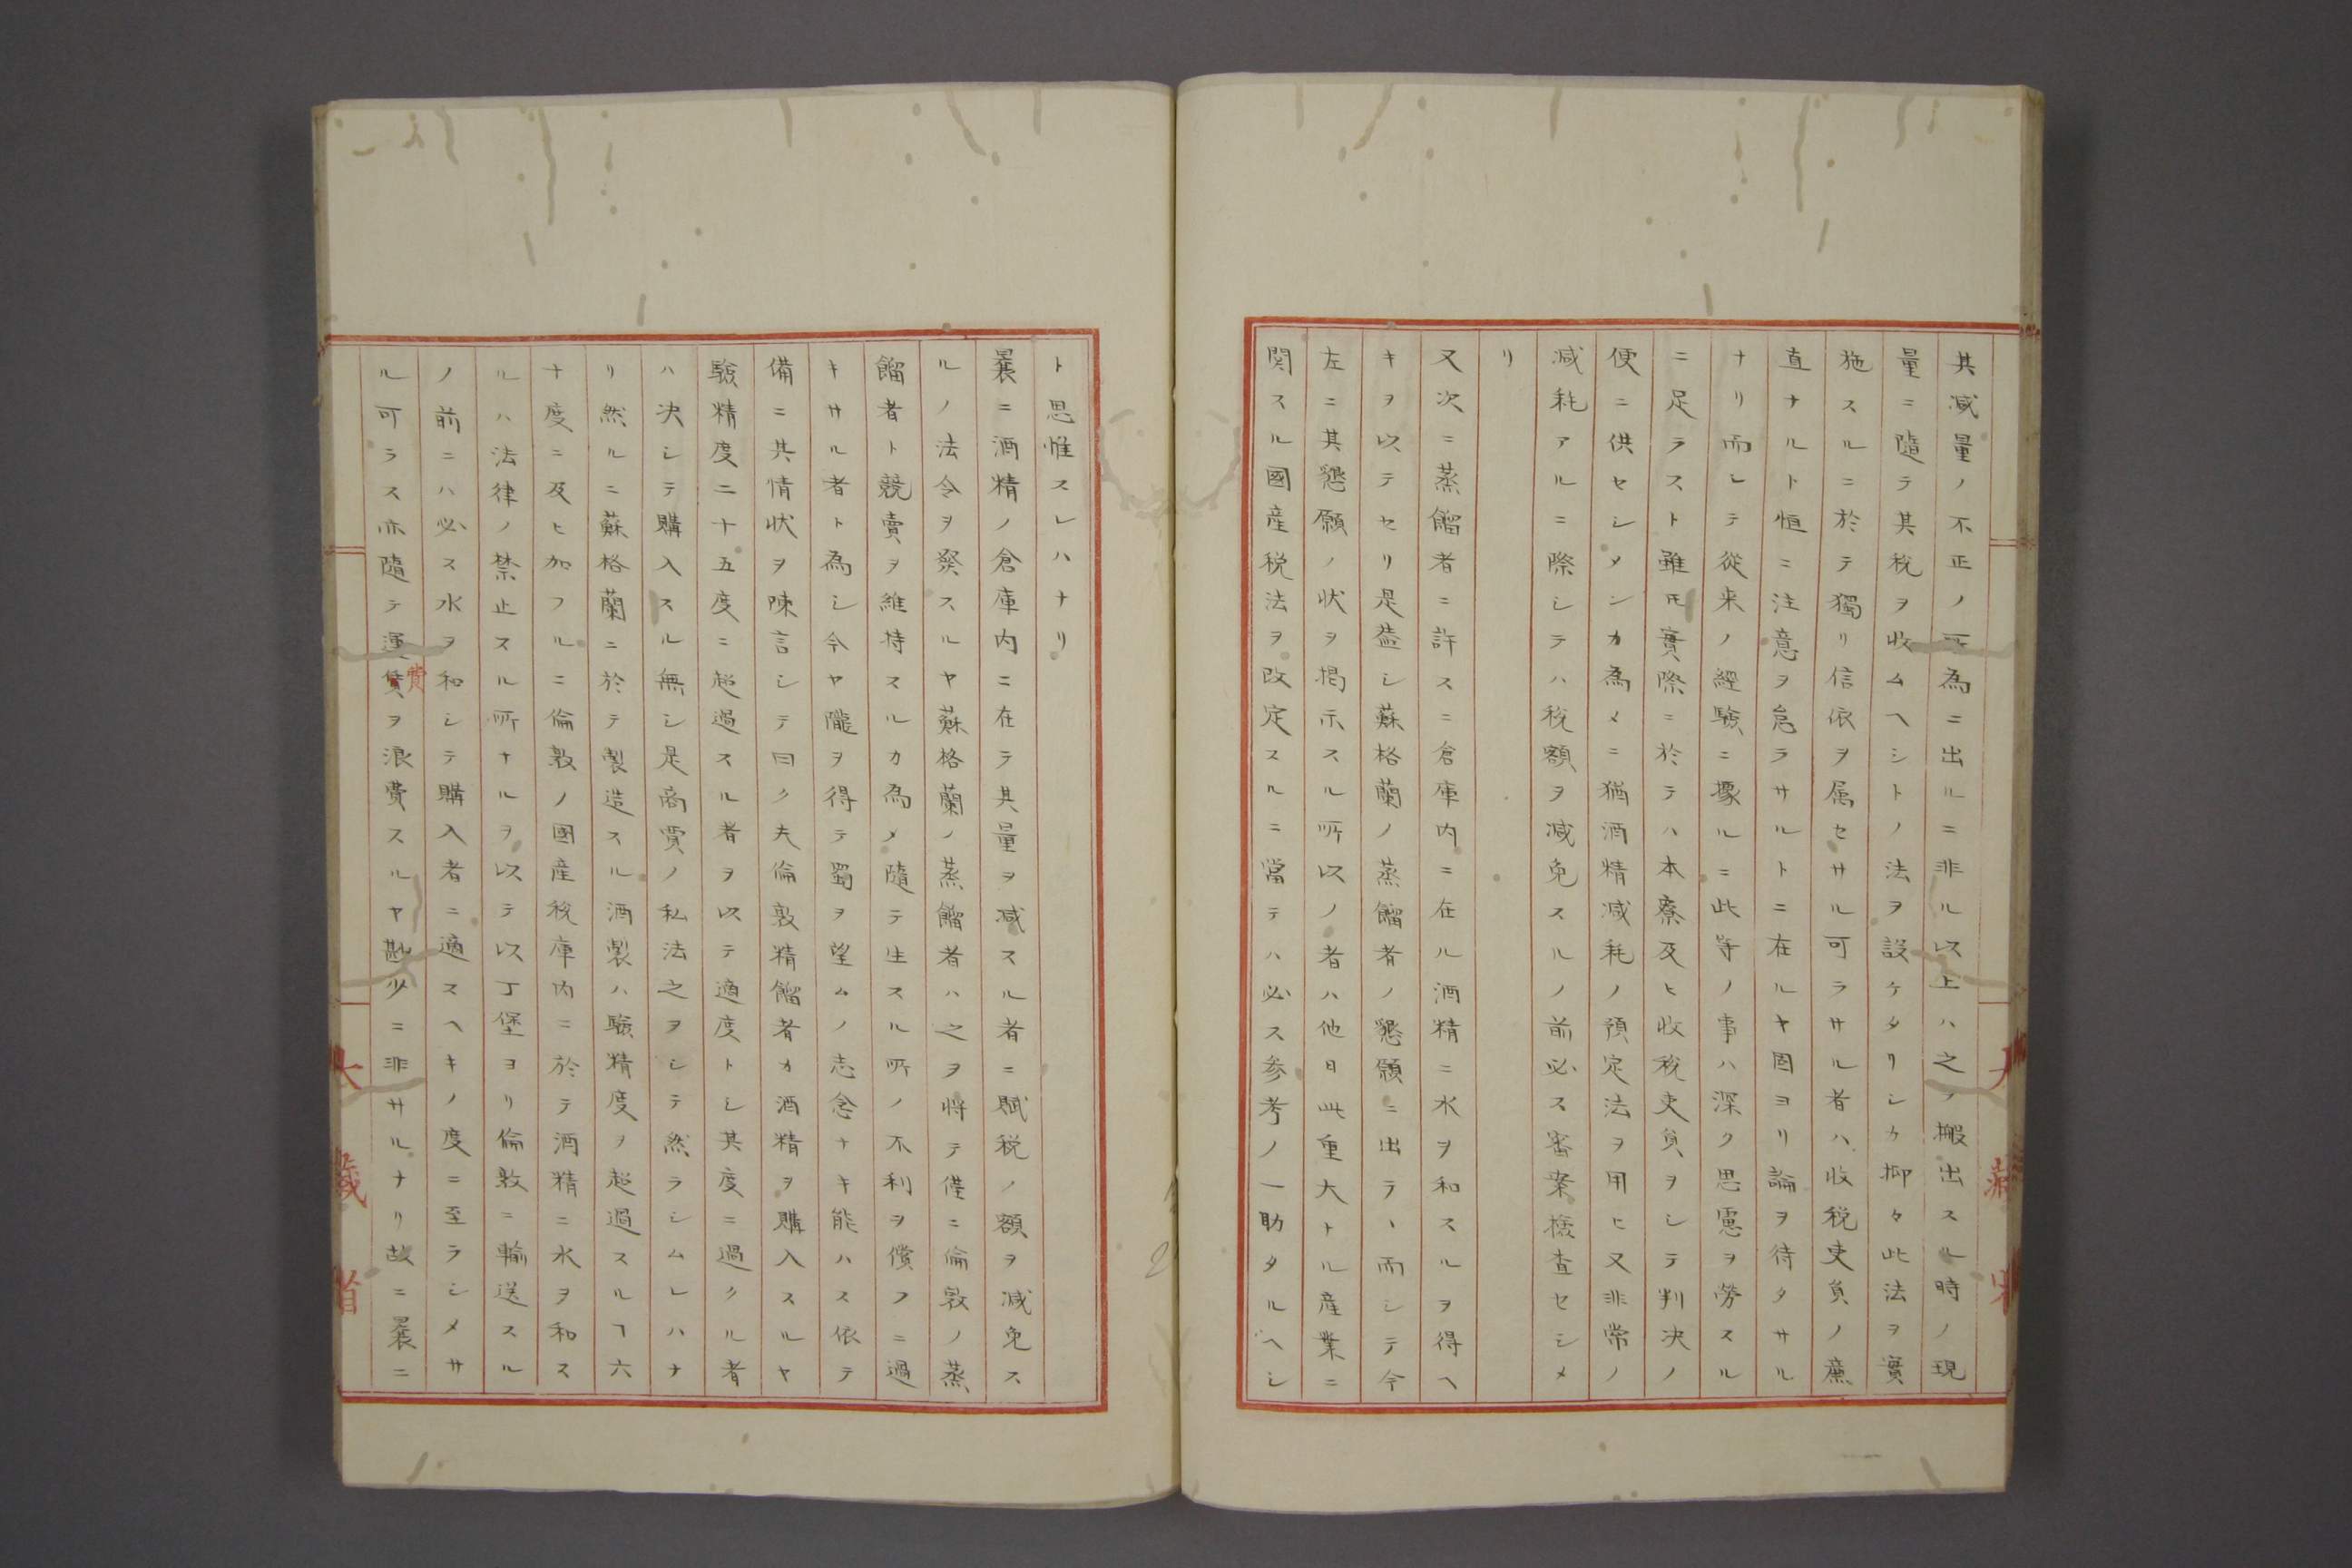 其減量ノ不正ノ所為ニ出ルニ非ル以上ハ之ヲ搬出スル時ノ現
量ニ隨テ其税ヲ收ムヘシトノ法ヲ設ケタリシカ抑々此法ヲ實
施スルニ於テ獨リ信依ヲ属セサル可ラサル者ハ收税吏員ノ廉
直ナルト恒ニ注意ヲ怠ラサルトニ在ルヤ固ヨリ論ヲ待タサル
ナリ而シテ從来ノ經驗ニ據ルニ此等ノ事ハ深ク思慮ヲ勞スル
ニ足ラスト雖𪜈實際ニ於テハ本寮及ヒ收税吏員ヲシテ判決ノ
便ニ供セシメンカ為メニ猶酒精減耗ノ預定法ヲ用ヒ又非常ノ
減耗アルニ際シテハ税額ヲ減免スルノ前必ス審案撿査セシメ
リ
又次ニ蒸餾者ニ許スニ倉庫内ニ在ル酒精ニ水ヲ和スルヲ得ヘ
キヲ以テセリ是蓋シ蘇格蘭ノ蒸餾者ノ懇願ニ出ラヽ而シテ今
左ニ其懇願ノ状ヲ掲示スル所以ノ者ハ他日此重大ナル産業ニ
関スル國産税法ヲ改定スルニ當テハ必ス参考ノ一助タルヘシ
ト思惟スレハナリ
曩ニ酒精ノ倉庫内ニ在テ其量ヲ減スル者ニ賦税ノ額ヲ減免ス
ルノ法令ヲ發スルヤ蘇格蘭ノ蒸餾者ハ之ヲ将テ僅ニ倫敦ノ蒸
餾者ト競賣ヲ維持スルカ為メ隨テ生スル所ノ不利ヲ償フニ過
キサル者ト為シ今ヤ隴ヲ得テ蜀ヲ望ムノ志念ナキ能ハス依テ
備ニ其情状ヲ陳言シテ曰ク夫倫敦精餾者カ酒精ヲ購入スルヤ
驗精度二十五度ニ超過スル者ヲ以テ適度トシ其度ニ過クル者
ハ决シテ購入スル無シ是商賈ノ私法之ヲシテ然ラシムレハナ
リ然ルニ蘇格蘭ニ於テ製造スル酒製ハ驗精度ヲ超過スルヿ六
十度ニ及ヒ加フルニ倫敦ノ國産税庫内ニ於テ酒精ニ水ヲ和ス
ルハ法律ノ禁止スル所ナルヲ以テ以丁堡ヨリ倫敦ニ輸送スル
ノ前ニハ必ス水ヲ和シテ購入者ニ適スヘキノ度ニ至ラシメサ
ル可ラス亦隨テ運賃ヲ浪費スルヤ尠少ニ非サルナリ故ニ曩ニ
大藏省